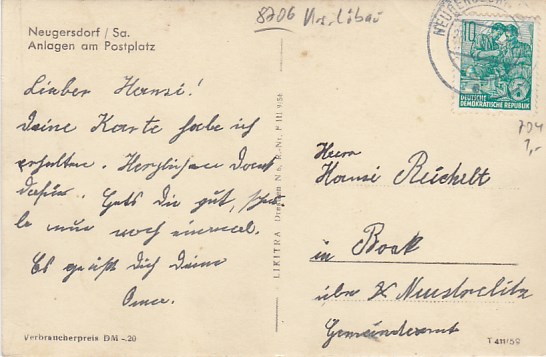 Neugersdorf / Sa.
Anlagen am Postplatz
8706 Krs. Löbau
NEUGERSDORF
10
DEUTSCHE
DEMOKRATISCHE REPUBLIK
704
1,-
Lieber Hansi!
Deine Karte habe ich
erhalten. Herzlichen Dank
dafür. Gehts Dir gut,
nur noch einmal.
Es grüßt Dich Deine
Herrn
Hansi Reichelt
in Boek
über Neustrelitz
Gemeindeamt
LIKITRA Dresden N 6, R.-Nr. F III 9/54
Verbraucherpreis DM -.20
T 411/59